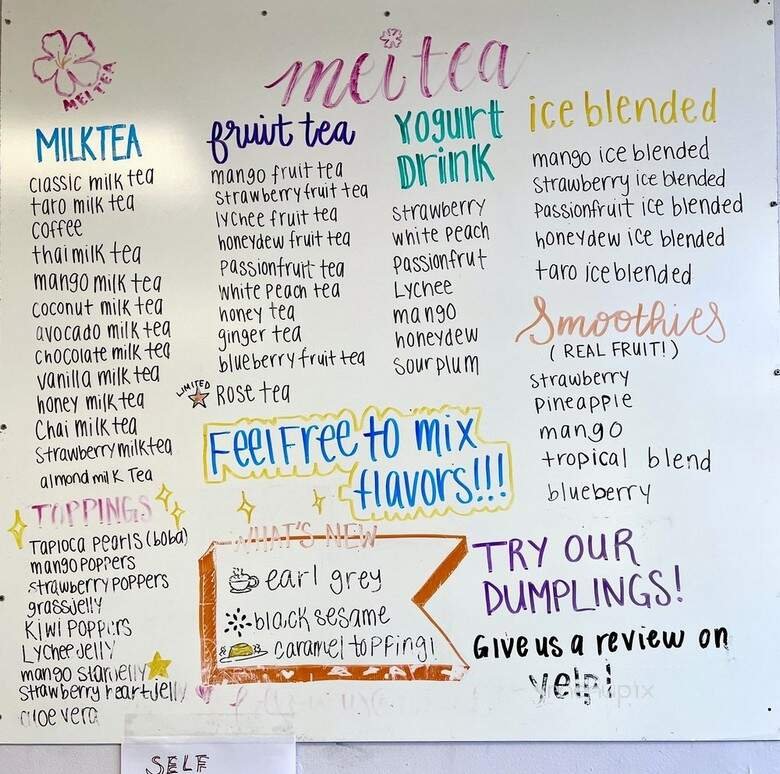 MEI TEA
mei tea
MILKTEA
classic milk tea
taro milk tea
coffee
thai milk tea
mango milk tea
coconut milk tea
avocado milk tea
chocolate milk tea
vanilla milk tea
honey milk tea
Chai milk tea
Strawberry milk tea
almond milk Tea
TOPPINGS
Tapioca pearls (boba)
mango poppers
strawberry poppers
grassjelly
Kiwi POPPERS
Lychee Jelly
mango star jelly
Strawberry heart jelly
aloe vera
fruit tea
mango fruit tea
strawberry fruit tea
lychee fruit tea
honeydew fruit tea
passionfruit tea
white peach tea
honey tea
ginger tea
blueberry fruit tea
LIMITED
ROSE tea
Yogurt
Drink
strawberry
white peach
passionfrut
Lychee
mango
honeydew
sour plum
ice blended
mango ice blended
strawberry ice blended
passionfruit ice blended
honeydew ice blended
taro ice blended
Smoothies
( REAL FRUIT! )
strawberry
pineapple
mango
tropical blend
blueberry
Feel Free to mix
flavors!!!
WHAT'S NEW
earl grey
black sesame
caramel topping!
TRY OUR
DUMPLINGS!
Give us a review on
yelp!
SELF